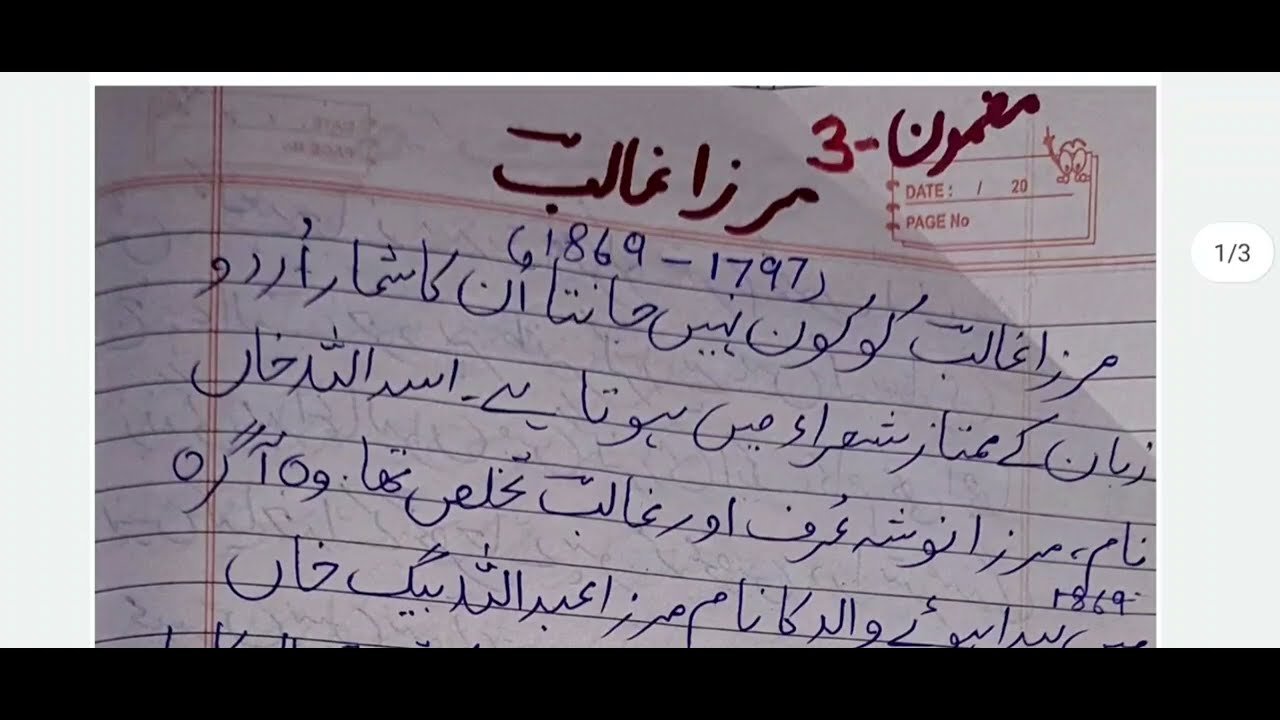 مضمون -3
DATE: / 20
PAGE No
مرزا غالب
(1797 – 1869ء)
1/3
مرزا غالب کو کون نہیں جانتا اُن کا شمار اُردو
زبان کے ممتاز شعراء میں ہوتا ہے۔ اسد اللہ خاں
نام، مرزا نوشہ عُرف اور غالب تخلص تھا۔ وہ آگرہ
1869
میں پیدا ہوئے والد کا نام مرزا عبد اللہ بیگ خاں